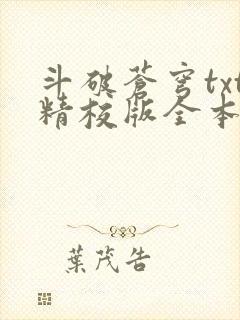 斗破蒼穹txt
精校版全本
葉茂告